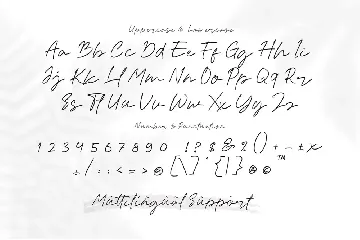 Uppercase & Lowercase
Aa Bb Cc Dd Ee Ff Gg Hh Ii
Jj Kk Ll Mm Nn Oo Pp Qq Rr
Ss Tt Uu Vv Ww Xx Yy Zz
Number & Punctuation
1 2 3 4 5 6 7 8 9 0 !? $ & 2 () + - ± x ™
÷ / : : < = > @ [\] ^ {|} © ®
Multilingual Support